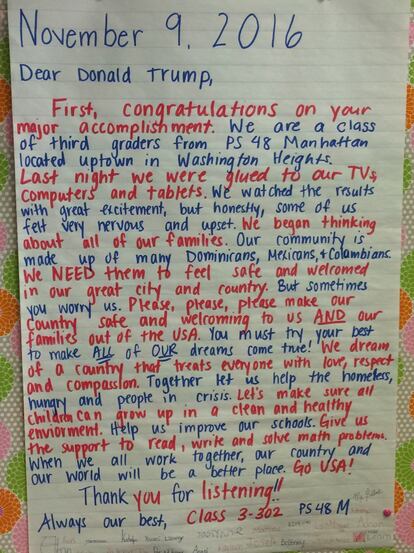 November 9, 2016
Dear Donald Trump,
First, congratulations on your
major accomplishment. We are a class
of third graders from PS 48 Manhattan
located uptown in Washington Heights.
Last night we were glued to our TVs,
computers and tablets. We watched the results
with great excitement, but honestly, some of us
felt very nervous and upset. We began thinking
about all of our families. Our community is
made up of many Dominicans, Mexicans, + Colombians.
We NEED them to feel safe and welcomed
in our great city and country. But sometimes
you worry us. Please, please, please make our
Country safe and welcoming to us AND our
families out of the USA. You must try your best
to make ALL of OUR dreams come true! We dream
of a country that treats everyone with love, respect
and compassion. Together let us help the homeless,
hungry and people in crisis. Let's make sure all
children can grow up in a clean and healthy
enviorment. Help us improve our schools. Give us
the support to read, write and solve math problems.
When we all work together, our country and
our world will be a better place. Go USA!
Thank you for listening!!
Always our best, Class 3-302 PS 48 M